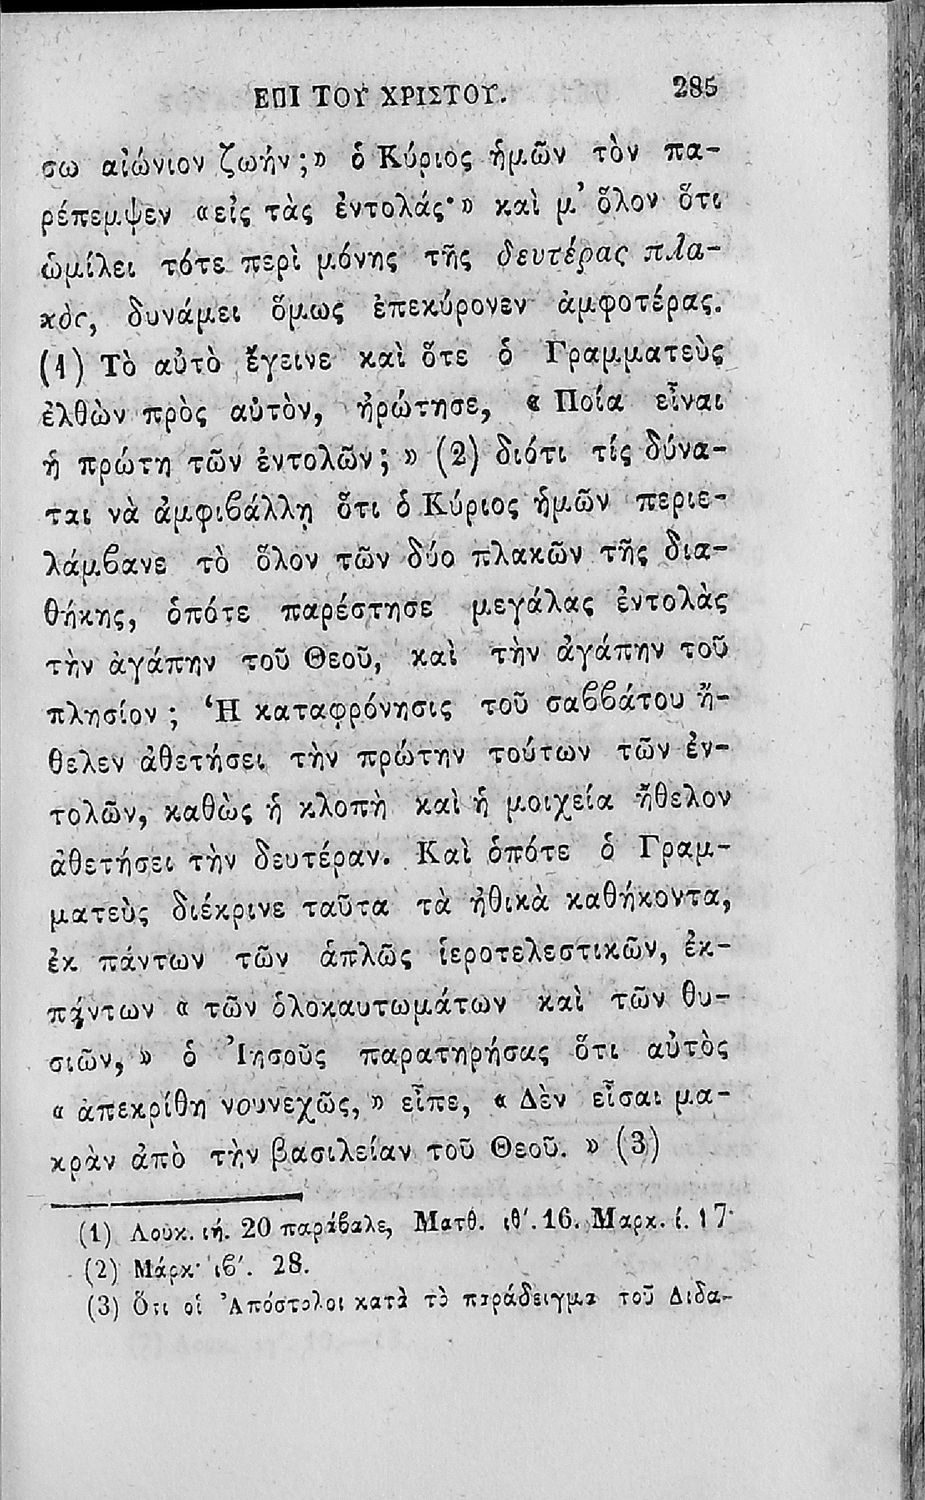 ΕΠΙ ΤΟΥ ΧΡΙΣΤΟΥ. 285
σω αἰώνιον ζωήν ;» ὁ Κύριος ἡμῶν τὸν πα-
ρέπεμψεν «εἰς τὰς ἐντολάς·» καὶ μ᾿ ὅλον ὅτι
ὡμίλει τότε περὶ μόνης τῆς δευτέρας πλα-
κὸς, δυνάμει ὅμως ἐπεκύρονεν ἀμφοτέρας.
(1) Τὸ αὐτὸ ἔγεινε καὶ ὅτε ὁ Γραμματεὺς
ἐλθὼν πρὸς αὐτὸν, ἠρώτησε, « Ποία εἶναι
ἡ πρώτη τῶν ἐντολῶν ; » (2) διότι τίς δύνα-
ται νὰ ἀμφιβάλλῃ ὅτι ὁ Κύριος ἡμῶν περιε-
λάμβανε τὸ ὅλον τῶν δύο πλακῶν τῆς δια-
θήκης, ὁπότε παρέστησε μεγάλας ἐντολὰς
τὴν ἀγάπην τοῦ Θεοῦ, καὶ τὴν ἀγάπην τοῦ
πλησίον ; Ἡ καταφρόνησις τοῦ σαββάτου ἤ-
θελεν ἀθετήσει τὴν πρώτην τούτων τῶν ἐν-
τολῶν, καθὼς ἡ κλοπὴ καὶ ἡ μοιχεία ἤθελον
ἀθετήσει τὴν δευτέραν. Καὶ ὁπότε ὁ Γραμ-
ματεὺς διέκρινε ταῦτα τὰ ἠθικὰ καθήκοντα,
ἐκ πάντων τῶν ἁπλῶς ἱεροτελεστικῶν, ἐκ-
πάντων « τῶν ὁλοκαυτωμάτων καὶ τῶν θυ-
σιῶν, » ὁ Ἰησοῦς παρατηρήσας ὅτι αὐτὸς
« ἀπεκρίθη νουνεχῶς, » εἶπε, « Δὲν εἶσαι μα-
κρὰν ἀπὸ τὴν βασιλείαν τοῦ Θεοῦ. » (3)
(1) Λουκ. ιή. 20 παράβαλε, Ματθ. ιθ΄. 16. Μαρκ. ί. 17·
(2) Μάρκ· ιβ΄. 28.
(3) Ὅτι οἱ Ἀπόστολοι κατὰ τὸ παράδειγμα τοῦ Διδα-